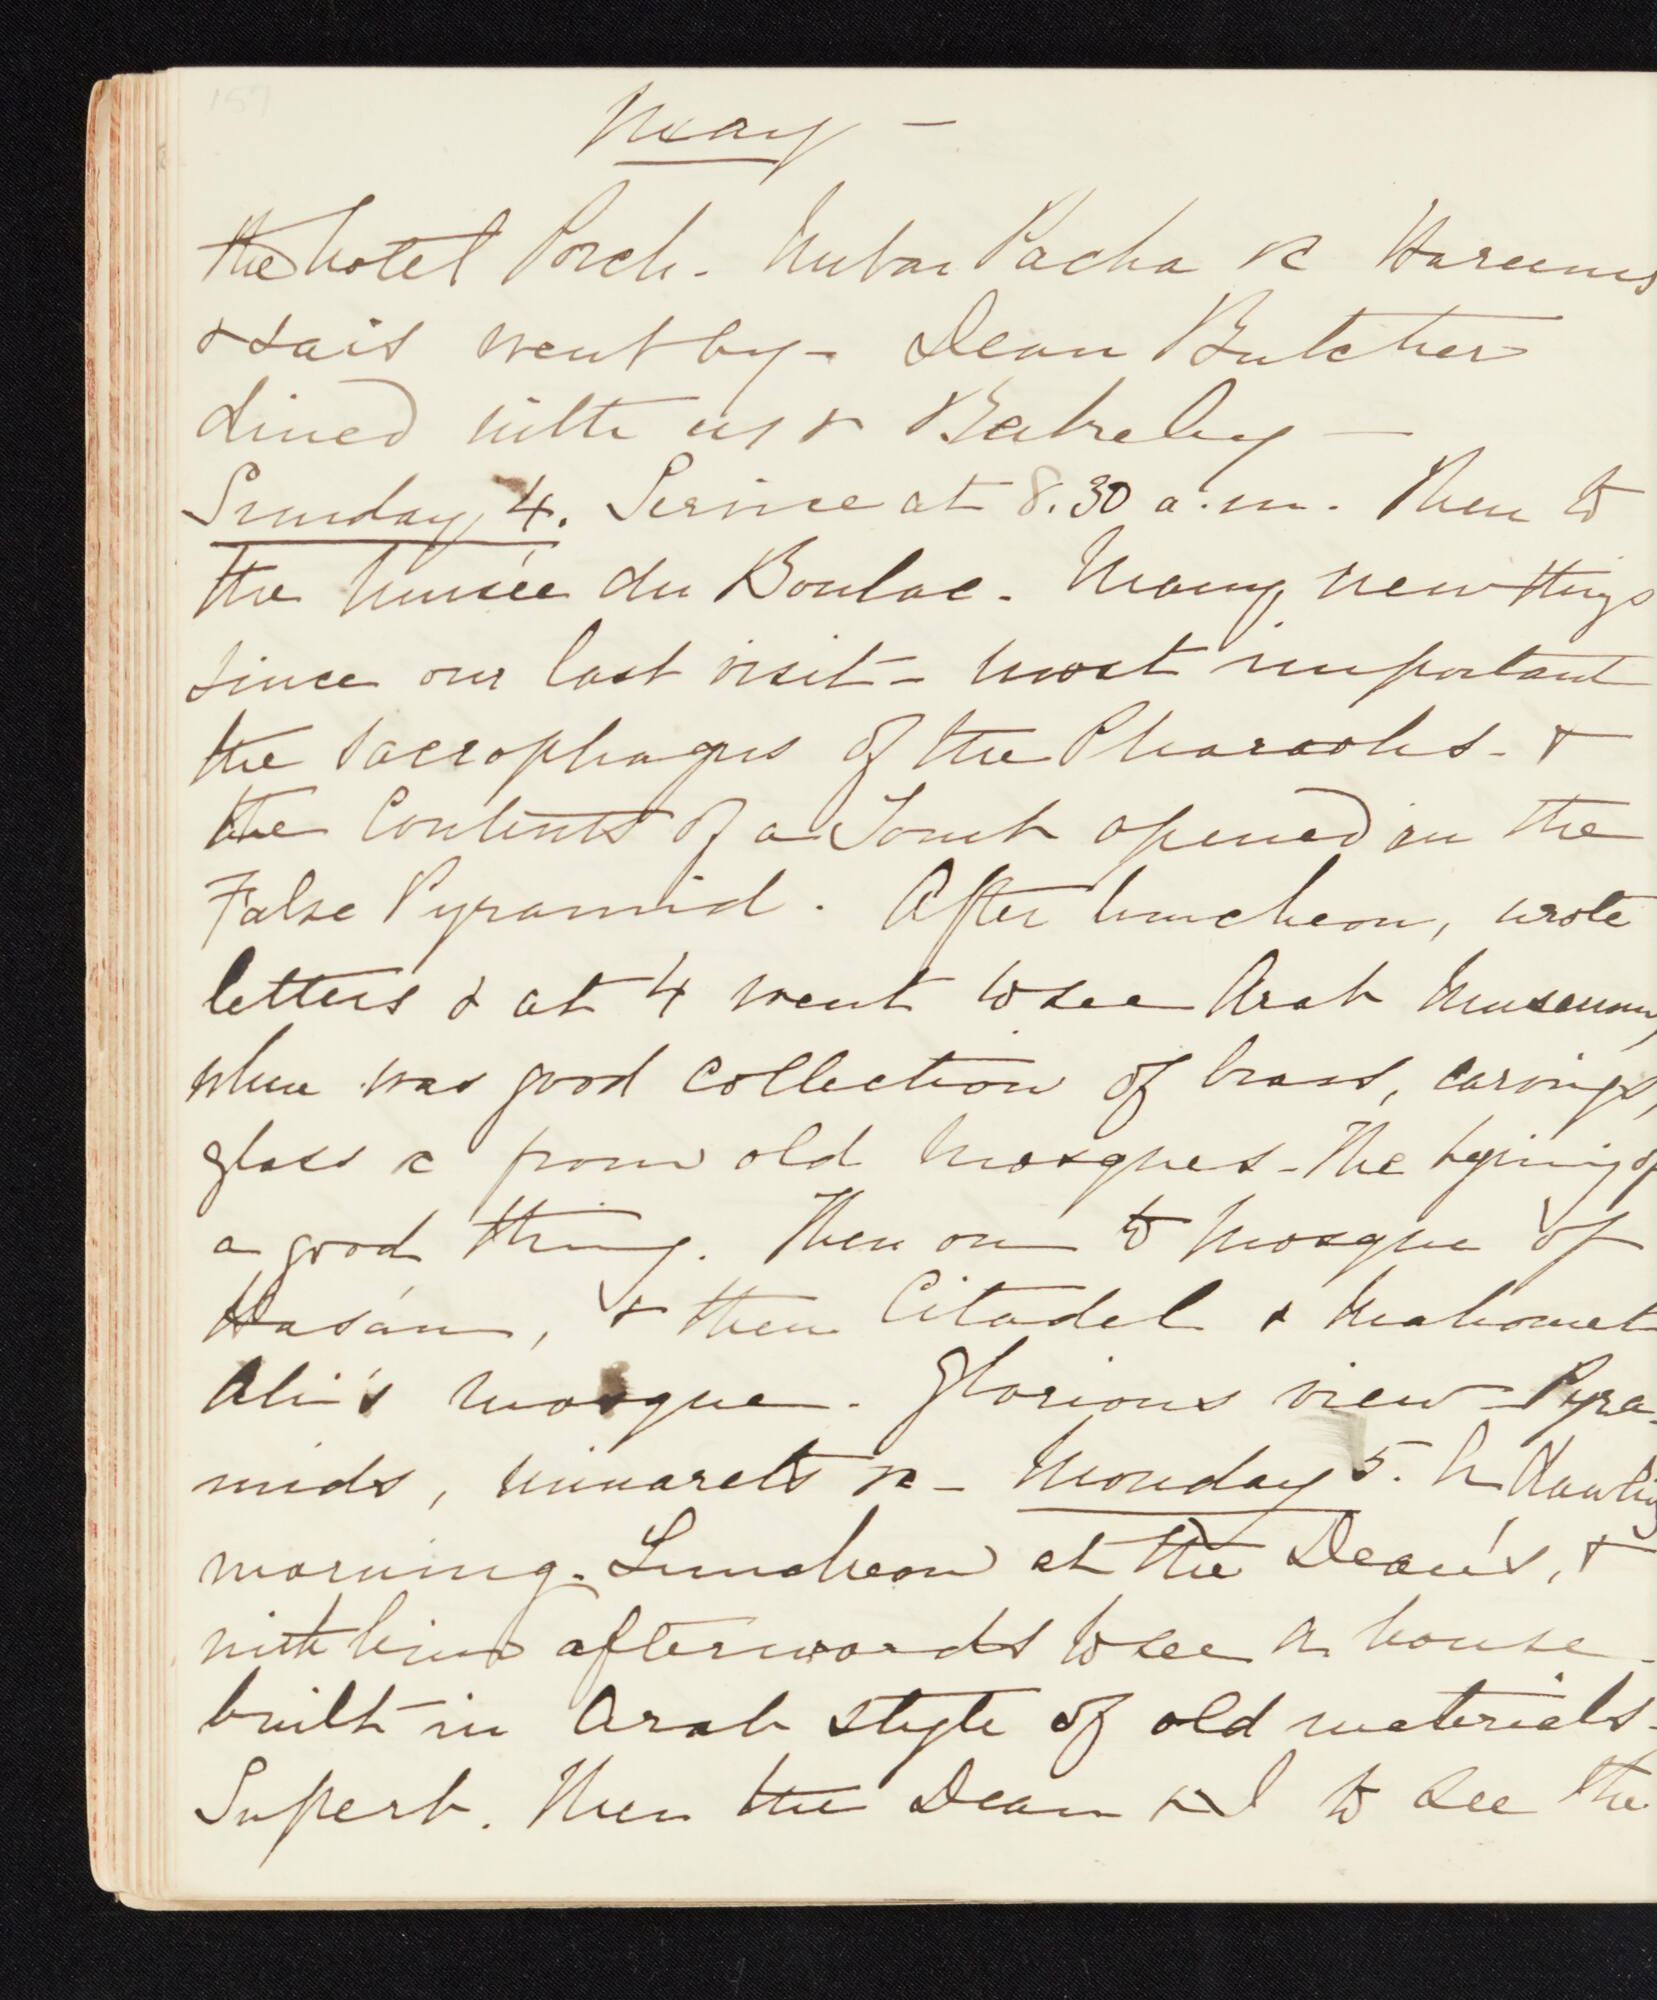 157
May —
the hotel Porch. Nubar Pacha &c Hareems
& sais went by - Dean Butcher
dined with us &
Sunday 4. Service at 8.30 a.m. Then to
the Musée du Boulac. Many new things
since our last visit - most important
the sacrophagus of the Pharaohs - &
the Contents of a Tomb opened in the
False Pyramid. After luncheon, wrote
letters & at 4 went to see Arab Museum,
where was good collection of brass, carvings,
glass &c from old Mosques - The begining of
a good thing. Then on to Mosque of
Hasán, & then Citadel & Mahomet
Ali's Mosque. Glorious view - Pyra-
mids, minarets &c - Monday 5.
morning. Luncheon at the Dean's, &
with him afterwards to see a house -
built in Arab style of old materials -
Superb. Then the Dean & I to see the